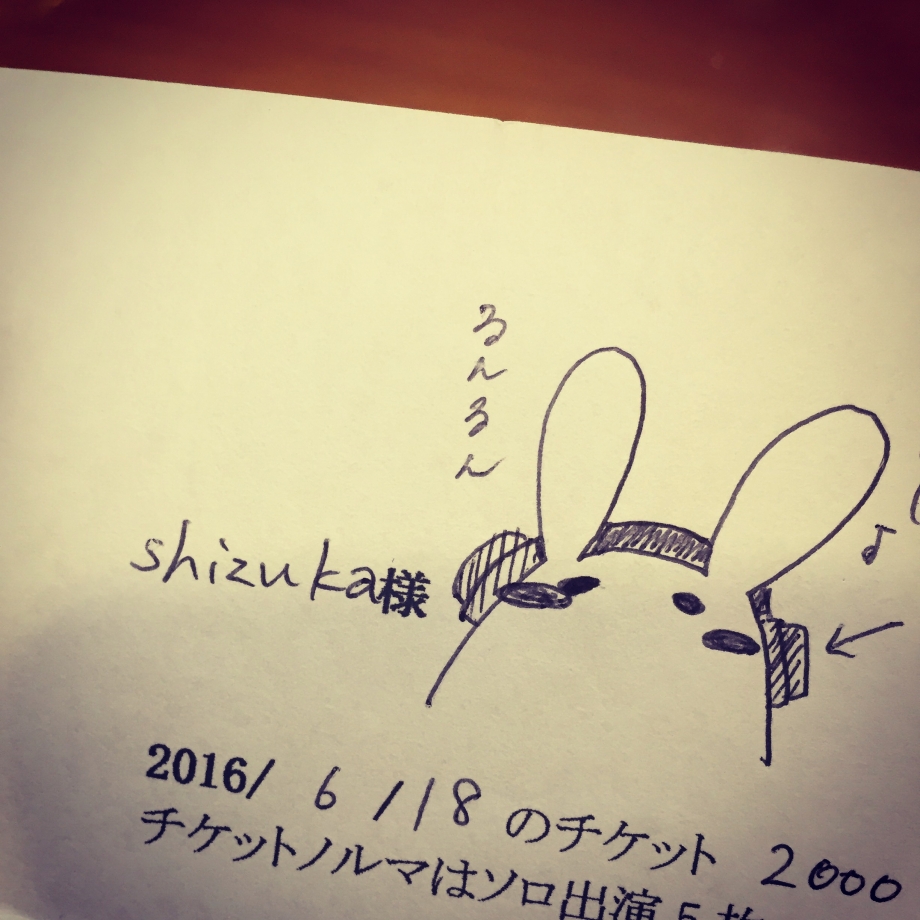 るんるん
shizuka様
♪
2016/ 6 /18 のチケット 2000
チケットノルマはソロ出演5枚